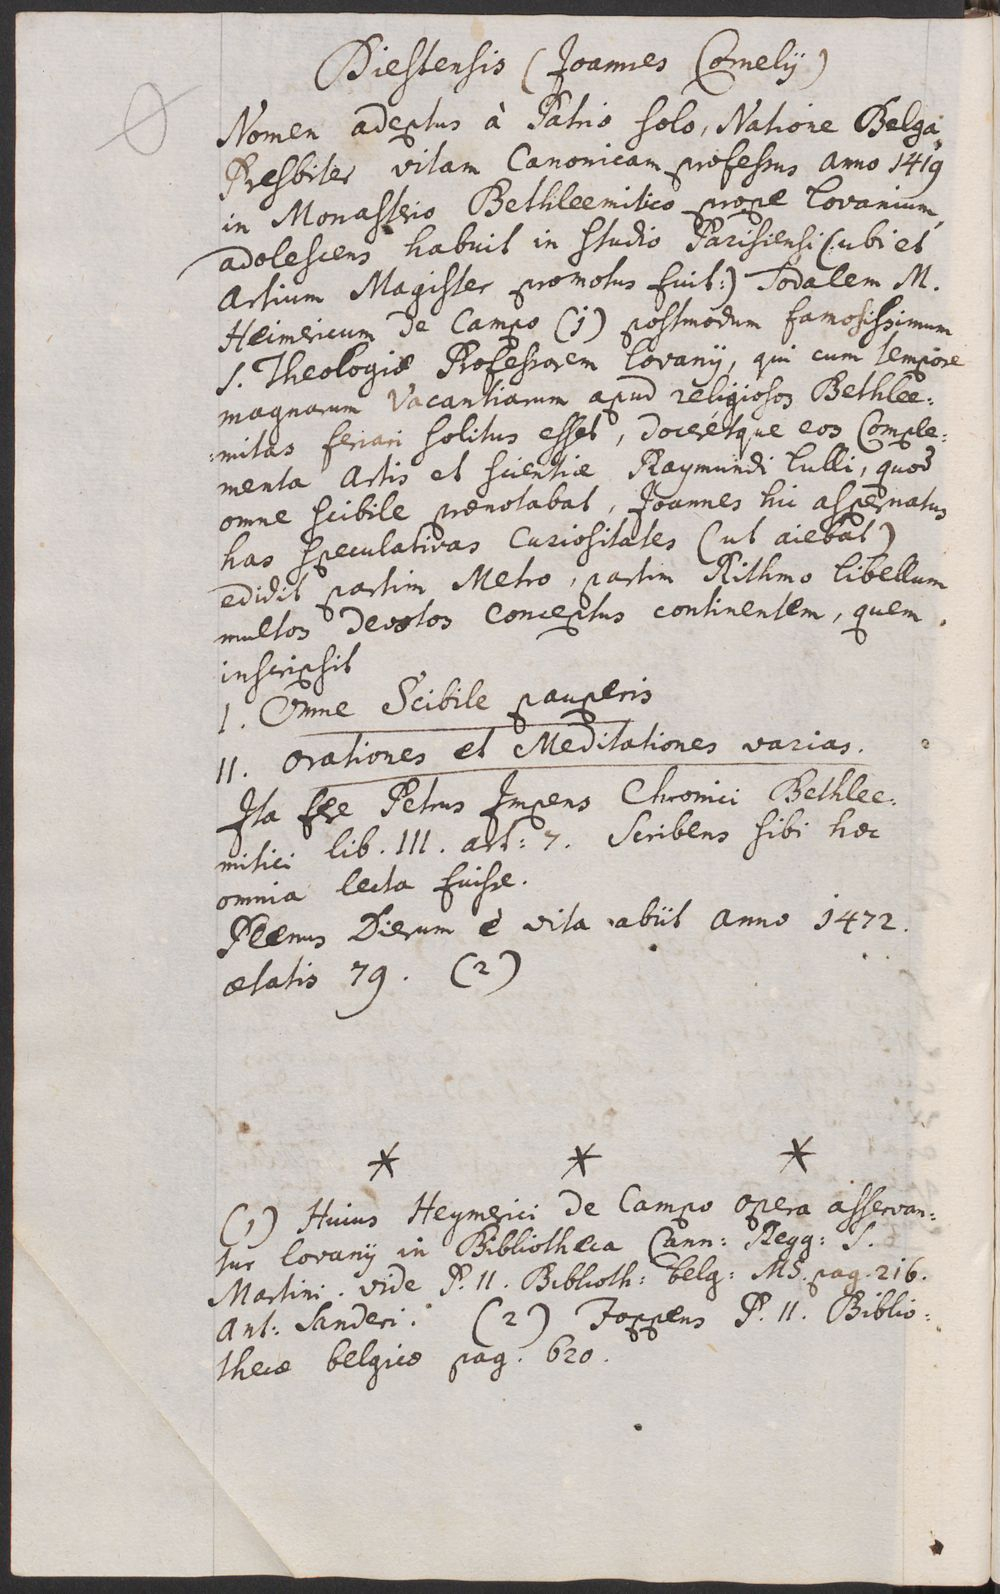 Diestensis (Joannes Cornelÿ)
Nomen adeptus à Patrio solo, Natione Belga,
Presbiter vitam Canonicam professus anno 1419
in Monasterio Bethleemitico prope Lovanium,
adolescens habuit in studio Parisiensi (:ubi et
Artium Magister promotus fuit:) Sodalem M.
Heimericum de Campo (1) postmodum famosissimum
S. Theologiæ Professorem Lovanÿ, qui cum tempore
magnarum Vacantiarum apud religiosos Bethlee:
:mitas feriari solitus esset, doceretque eos Comple:
menta Artis et scientiæ Raymundi Lulli, quod
omne scibile prænotabat, Joannes hic aspernatus
has speculativas Curiositates (ut aiebat)
edidit partim Metro, partim Rithmo libellum
multos devotos conceptus continentem, quem
inscripsit
I. Omne Scibile pauperis
II. Orationes et Meditationes varias.
Ita fre Petrus Impens Chronici Bethlee:
mitici lib. III. art: 7. Scribens sibi hæc
omnia lecta fuisse.
Plenus Dierum è vita abiit anno 1472.
ætatis 79. (2)
* * *
(1) Huius Heymerici de Campo opera asservan:
tur Lovanÿ in Bibliotheca Cann: Regg: S.
Martini. vide P. II. Biblioth: belg: MS. pag. 216.
Ant: Sanderi. (2) Foppens P. II. Biblio:
thecæ belgicæ pag. 620.